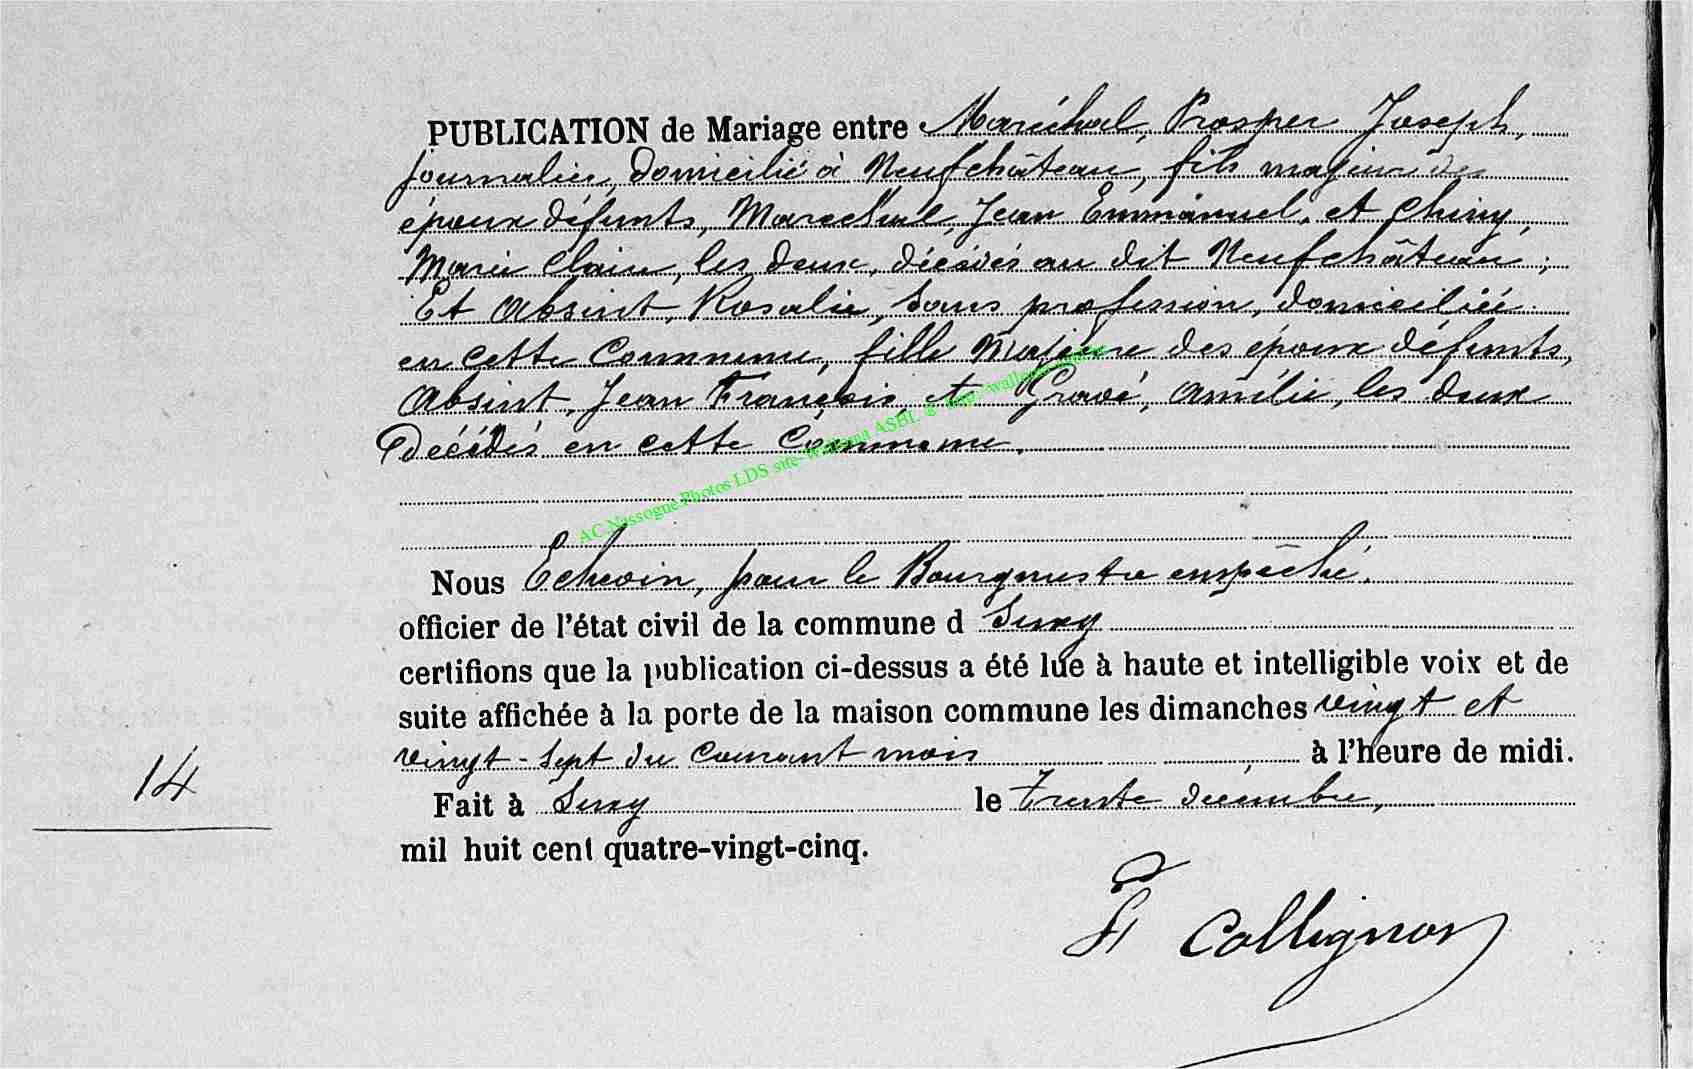 PUBLICATION de Mariage entre Maréchal, Prosper Joseph,
journalier, domicilié à Neufchâteau, fils majeur des
époux défunts, Marechal, Jean Emmanuel, et Chiny,
Marie Claire, les deux, décédés au dit Neufchâteau;
Et Absint, Rosalie, sans profession, domiciliée
en cette Commune, fille Majeure des époux défunts,
Absint, Jean François, et Gravé, Amélie, les deux
Décédés en cette Commune.
AC Nassogue Photos LDS site-Wallonia ASBL
Nous Echevin, pour le Bourgmestre empêché.
officier de l'état civil de la commune d Suxy
certifions que la publication ci-dessus a été lue à haute et intelligible voix et de
suite affichée à la porte de la maison commune les dimanches vingt et
vingt-sept du courant mois à l'heure de midi.
14
Fait à Suxy le Trente décembre,
mil huit cent quatre-vingt-cinq.
Collignon